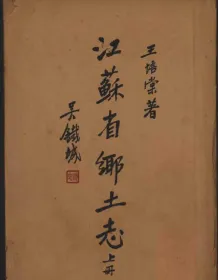 王培棠著
江蘇省鄉土志上册
吳鐵城